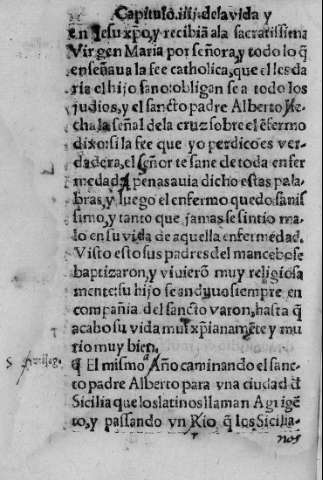 Capitulo.iiij.dela vida y
en Jesu xp̃o, y recibiã ala sacratissima
Virgen Maria por señora, y todo lo q̃
enseñaua la fee catholica, que el les da
ria el hijo sano: obligan se a todo los
judios, y el sancto padre Alberto he
cha la señal dela cruz sobre el ẽfermo
dixo: si la fee que yo perdico es ver
dadera, el señor te sane de toda enfer
medad. Apenas auia dicho estas pala
bras, y luego el enfermo quedo sanis
simo, y tanto que jamas se sintio ma
lo en su vida de aquella enfermedad.
Visto esto sus padres del mancebo se
baptizaron, y viuierõ muy religiosa
mente: su hijo se anduuo siempre en
compañia del sancto varon, hasta q̃
acabo su vida muí xp̃ianamẽte y mu
rio muy bien.
¶ El mismo Año caminando el sanc-
to padre Alberto para vna ciudad d̃
Sicilia que los latinos llaman Agrigẽ
to, y passando vn Rio q̃ los Sicilia-
nos